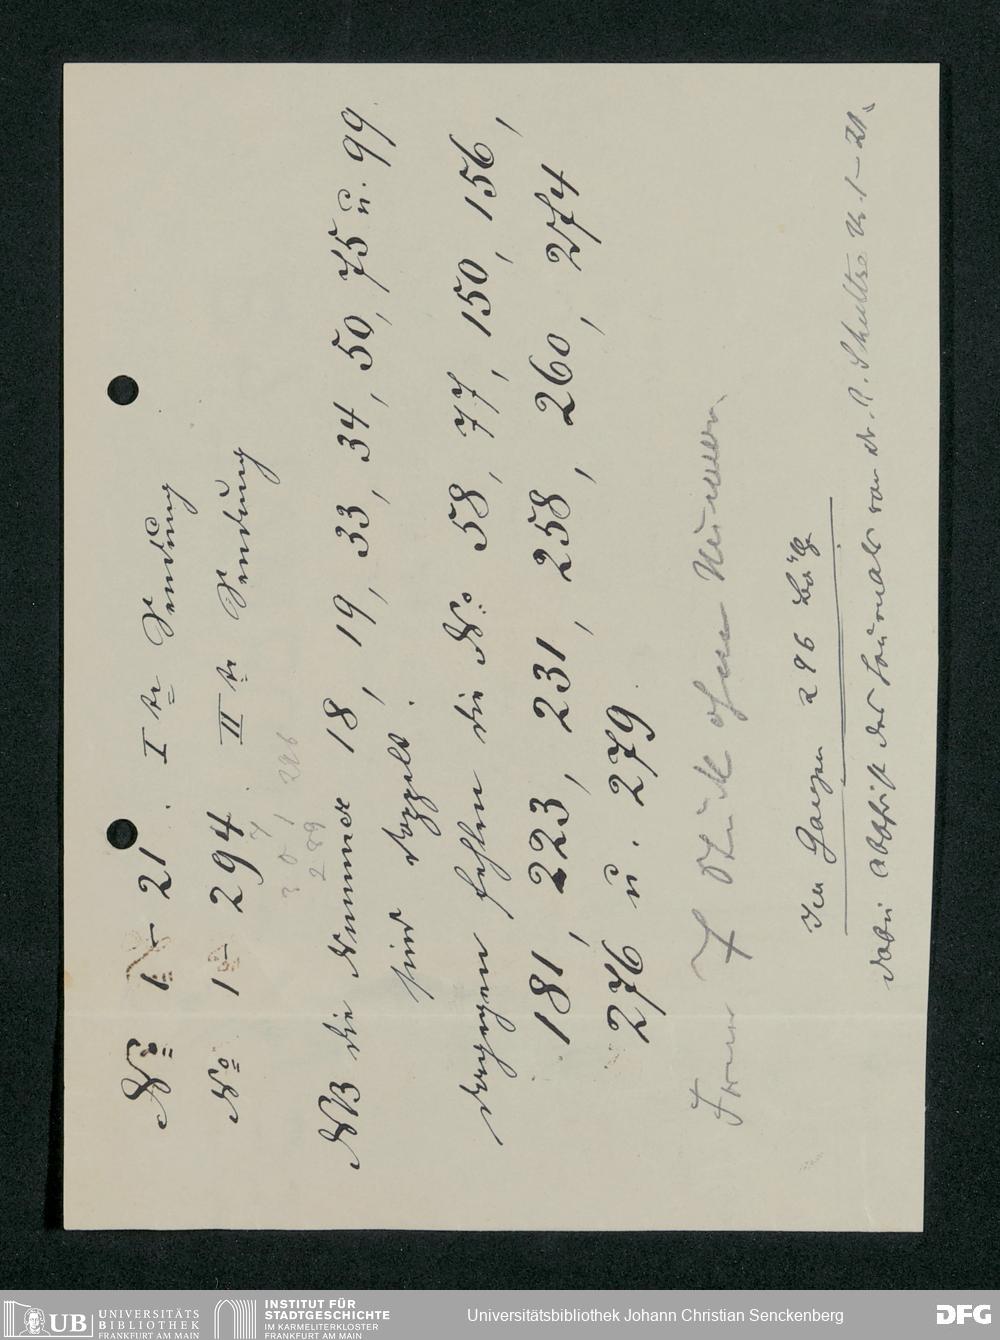 No 1 - 21. Ite Sendung
No 1 - 294 IIte Sendung
7
301, 296
289
NB die Nummer 18, 19, 33, 34, 50, 75 u. 99
sind doppelt.
dagegen fehlen die No. 58, 77, 150, 156,
181, 223, 231, 258, 260, 274
276 u. 279.
Ferner 7 Stück ohne Nummern.
Im Ganzen 296
dabei Abschrift des Journals von Dr. Schultze Nr. 1-21.
UB UNIVERSITÄTS
BIBLIOTHEK
FRANKFURT AM MAIN
INSTITUT FÜR
STADTGESCHICHTE
IM KARMELITERKLOSTER
FRANKFURT AM MAIN
Universitätsbibliothek Johann Christian Senckenberg
DFG